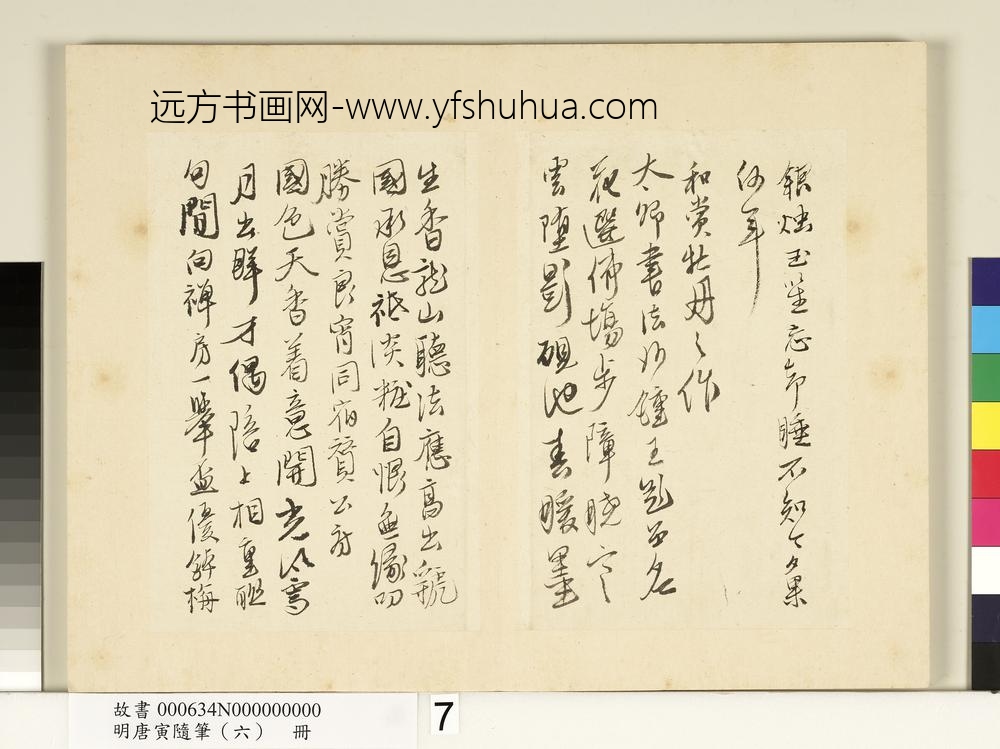 远方书画网-www.yfshuhua.com
銀燭玉笙忘却睡不知今夕果
何年
和賞牡丹之作
太師書法似鍾王題品名
花選佛場步障曉寒
雲墮影硯池春暖墨
生香龍山聽法應高出虢
國承恩祗淡粧自恨無緣叨
勝賞良宵同宿贊公房
國色天香着意開光風霽
月出群才偶陪上相重聯
句閒向禅房一舉盃優鉢梅
故書 000634N000000000
明唐寅隨筆(六) 冊
7